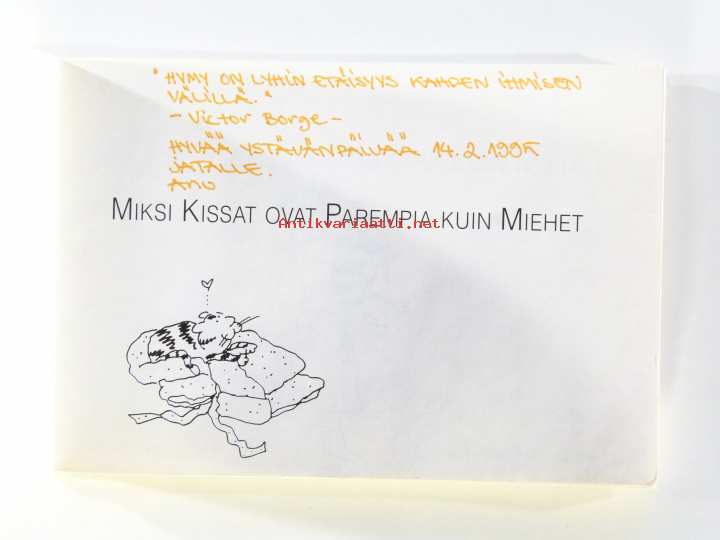 "HYMY ON LYHIN ETÄISYYS KAHDEN IHMISEN
VÄLILLÄ."
- Victor Borge -
HYVÄÄ YSTÄVÄNPÄIVÄÄ 14.2.1995
JATALLE.
ANU
MIKSI KISSAT OVAT PAREMPIA KUIN MIEHET
Antikvariaatti.net